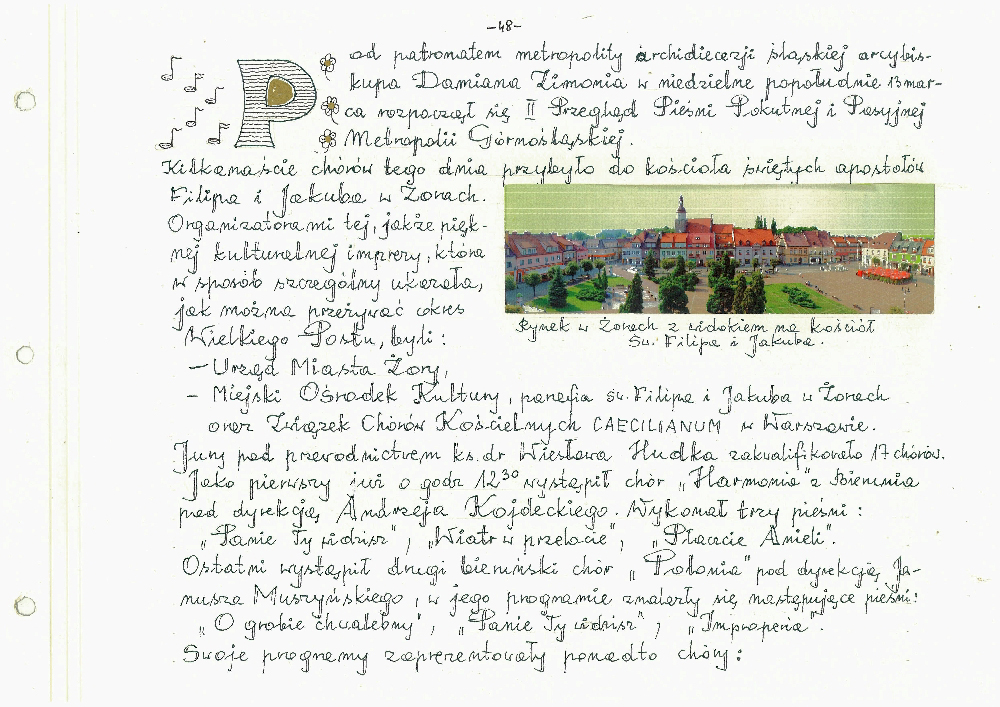 -48-
Pod patronatem metropolity archidiecezji śląskiej arcybis-
kupa Damiana Zimonia w niedzielne popołudnie 13 mar-
ca rozpoczął się II Przegląd Pieśni Pokutnej i Pasyjnej
Metropolii Górnośląskiej.
Kilkanaście chórów tego dnia przybyło do kościoła świętych apostołów
Filipa i Jakuba w Żorach.
Organizatorami tej, jakże pięk-
nej kulturalnej imprezy, która
w sposób szczególny ukazała,
jak można przeżywać okres
Wielkiego Postu, byli:
Rynek w Żorach z widokiem na kościół
Św. Filipa i Jakuba.
- Urząd Miasta Żory,
- Miejski Ośrodek Kultury, parafia św. Filipa i Jakuba w Żorach
oraz Związek Chórów Kościelnych CAECILIANUM w Warszawie.
Jury pod przewodnictwem ks. dr Wiesława Hudka zakwalifikowało 17 chórów.
Jako pierwszy już o godz 12³⁰ wystąpił chór „Harmonia" z Bierunia
pod dyrekcją Andrzeja Kojdeckiego. Wykonał trzy pieśni:
„Panie Ty widzisz", „Wiatr w przelocie", „Płaczcie Anieli".
Ostatni wystąpił drugi bieruński chór „Polonia" pod dyrekcją Ja-
nusza Muszyńskiego, w jego programie znalazły się następujące pieśni:
„O grobie chwalebny", „Panie Ty widzisz", „Improperia".
Swoje programy zaprezentowały ponadto chóry: